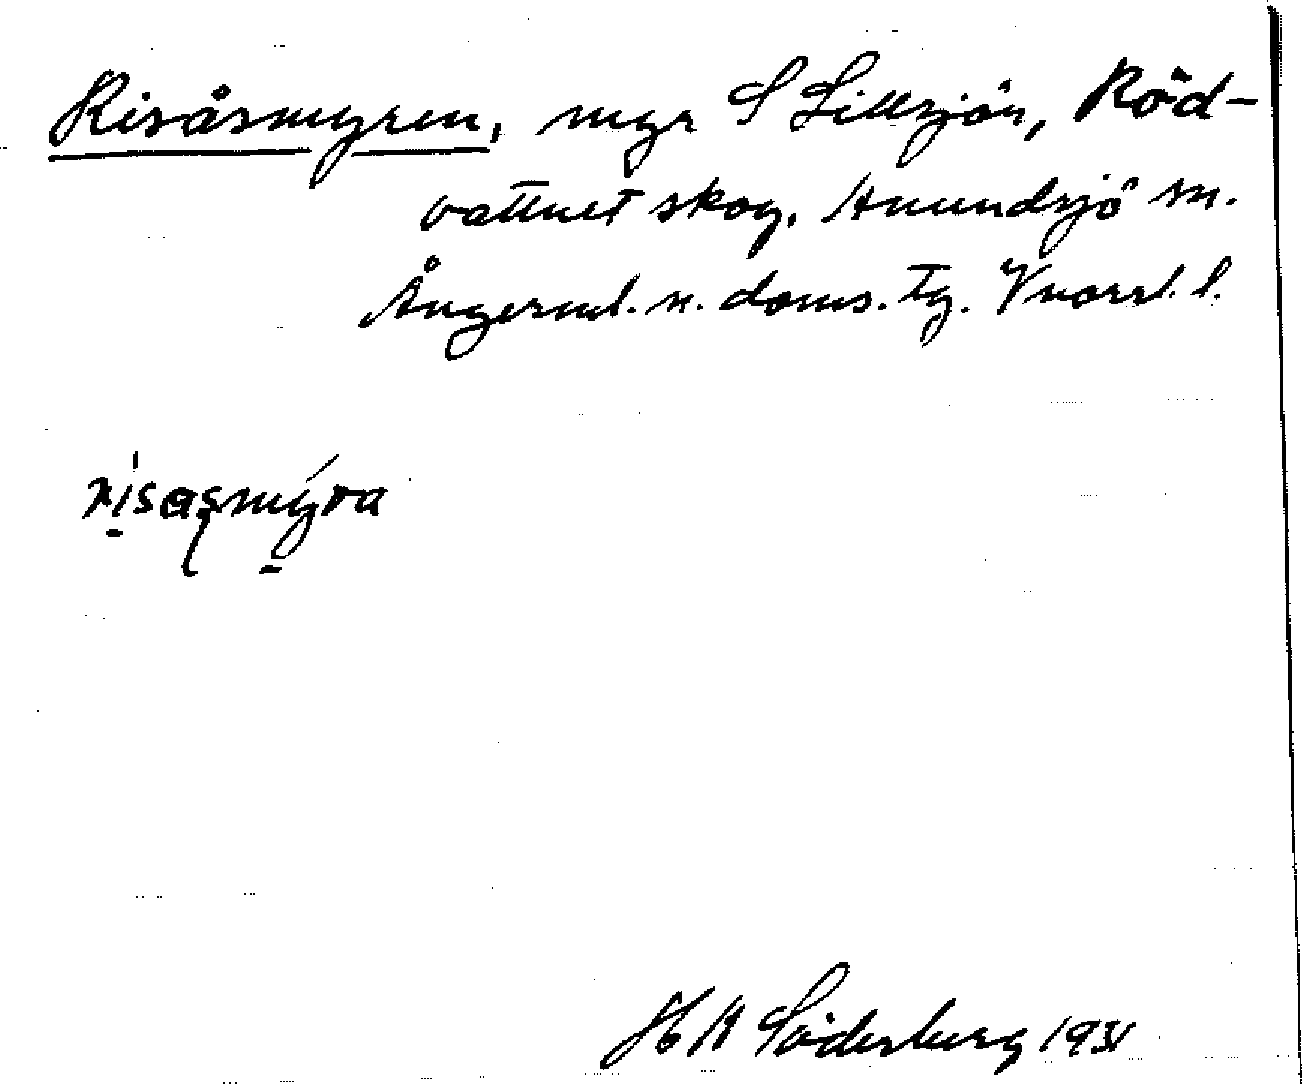 Risåsmyren, myr S Lillsjön, Röd-
vattnet skog, Anundsjö sn.
Ångerml. n. doms. tg. Vnorrl. l.
risasmyra
H A Söderberg 1931